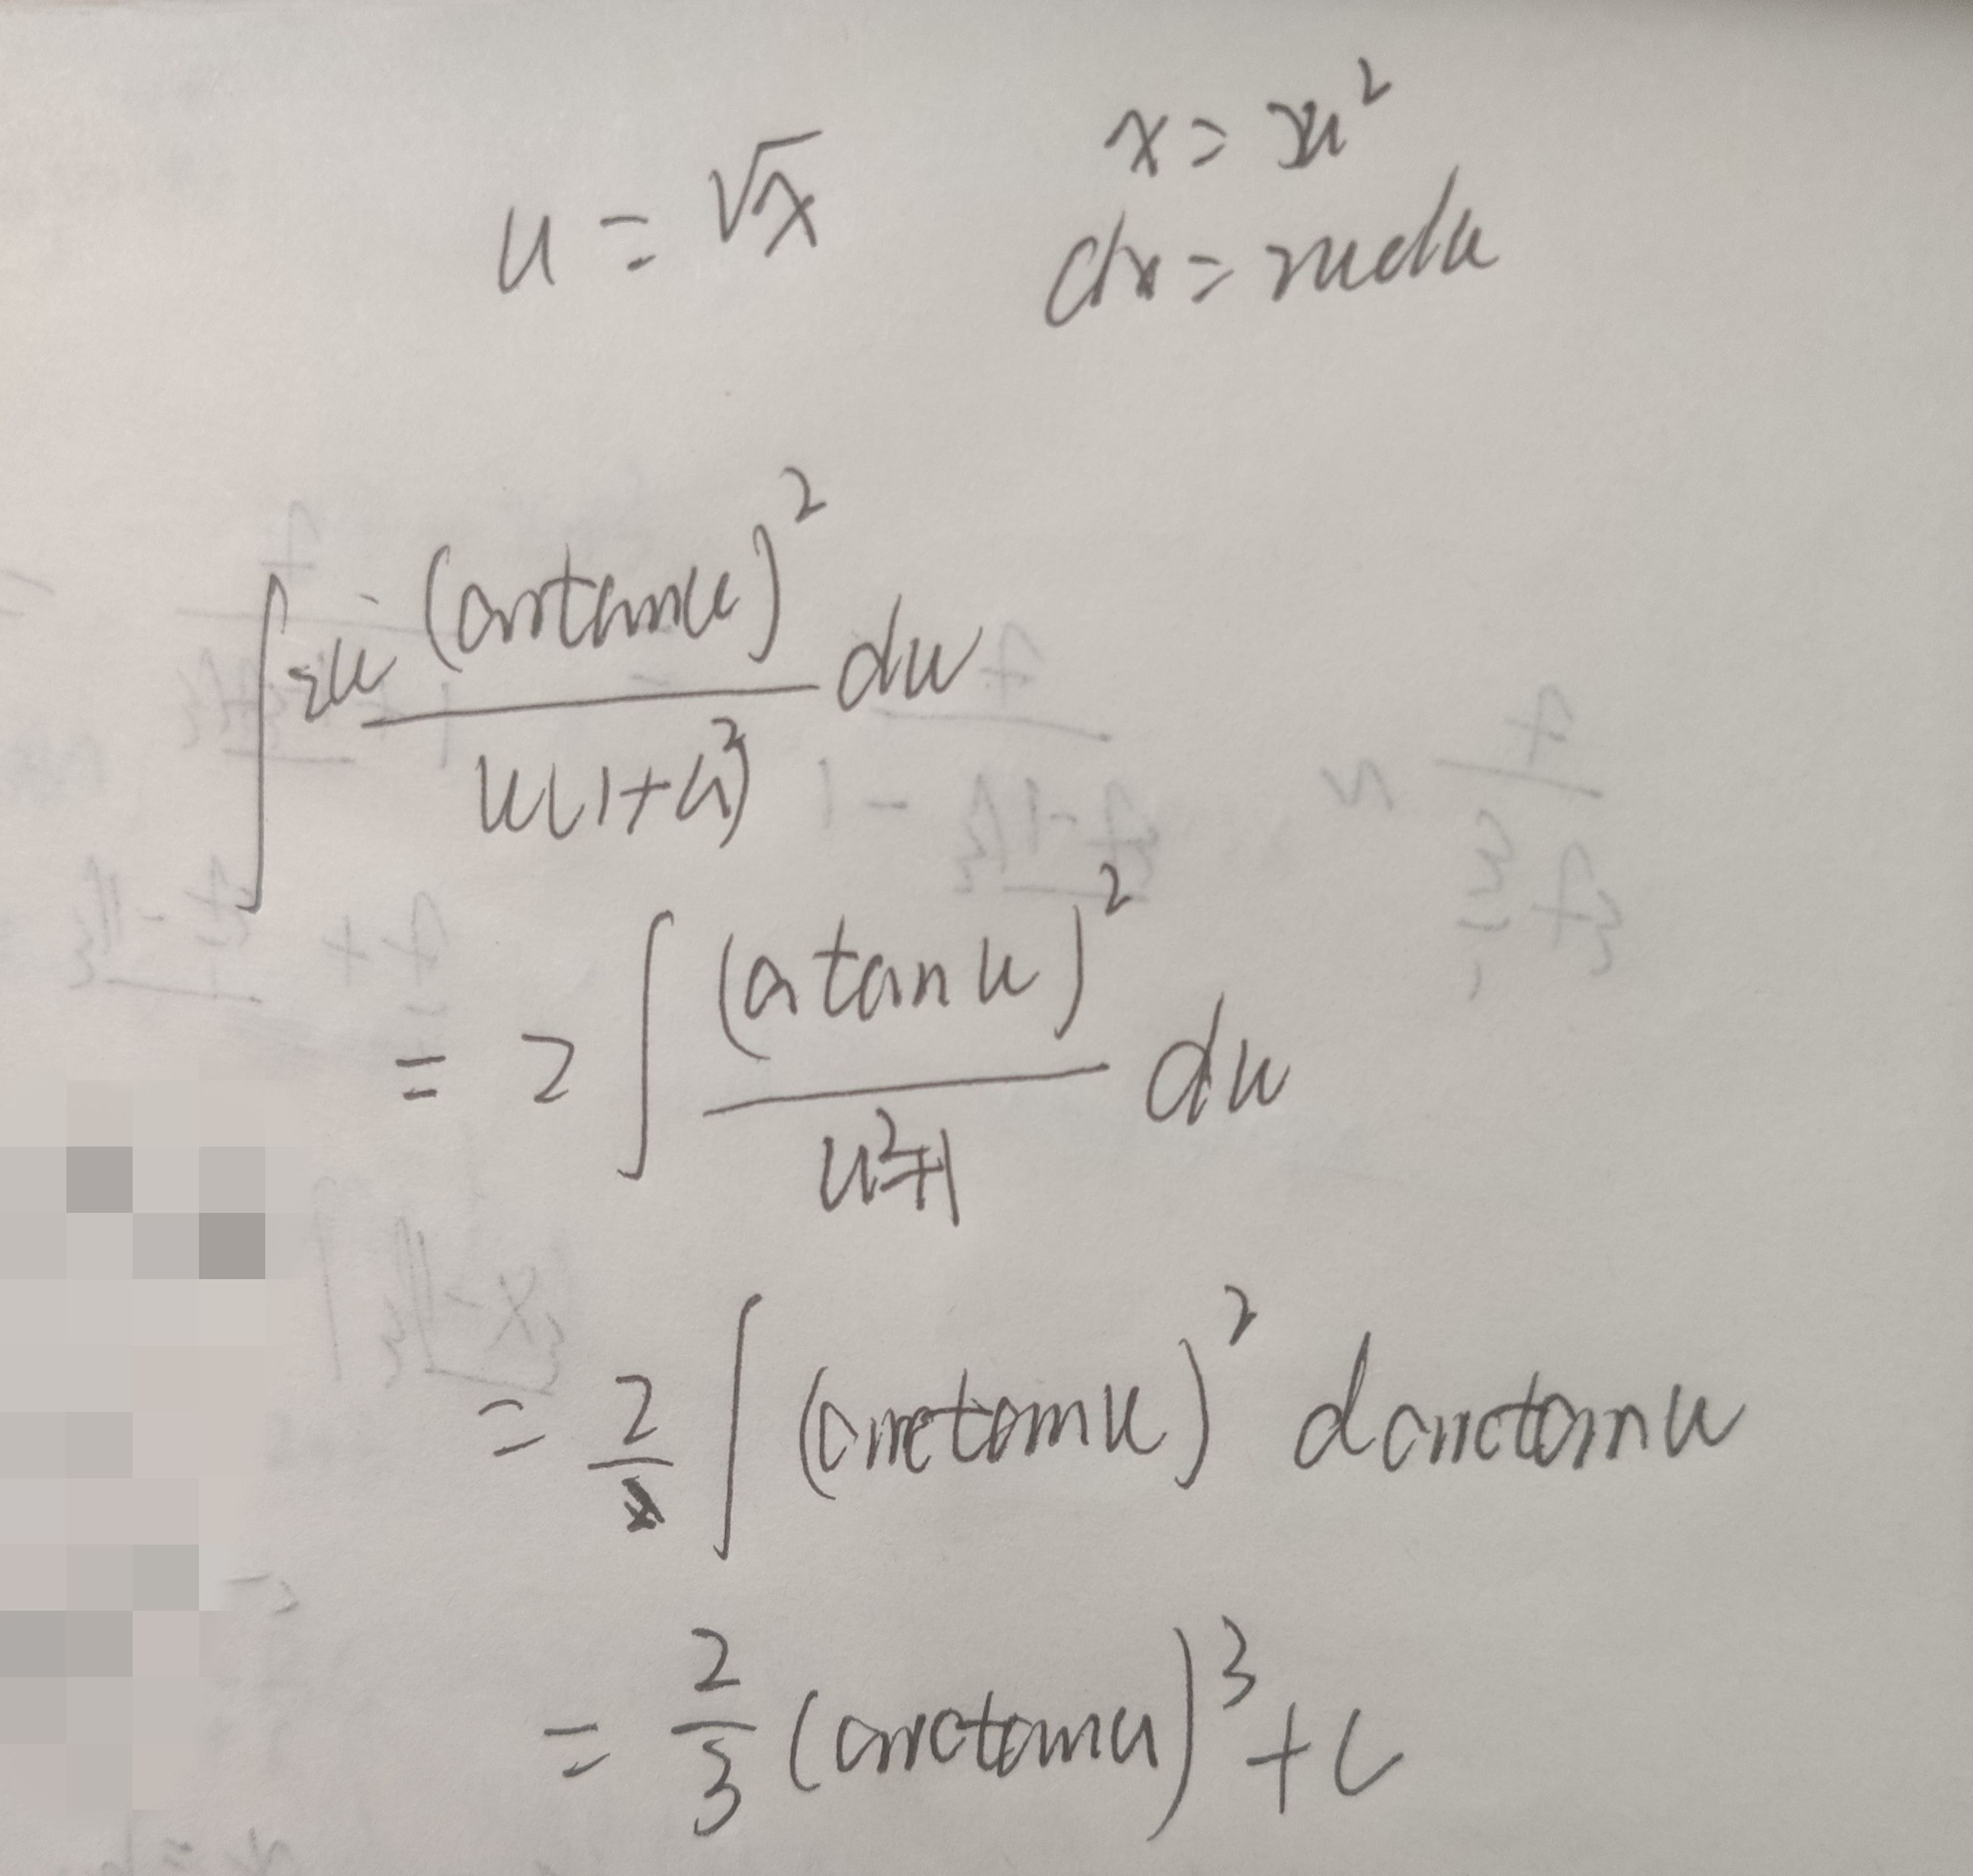 u = √x    x = u²
dx = 2udu
∫ 2u (arctanu)² / u(1+u²) du
= 2 ∫ (atanu)² / u²+1 du
= 2 ∫ (arctanu)² darctanu
= 2/3 (arctanu)³ + C